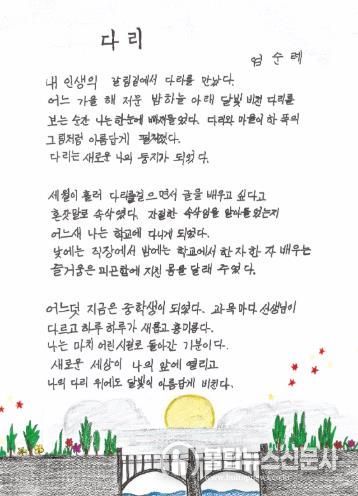 다리
엄순례
내 인생의 갈림길에서 다리를 만났다.
어느 가을 해 저문 밤하늘 아래 달빛 비친 다리를
보는 순간 나는 한눈에 빠져들었다. 다리와 마을이 한 폭의
그림처럼 아름답게 펼쳐졌다.
다리는 새로운 나의 둥지가 되었다.
세월이 흘러 다리를 걸으면서 글을 배우고 싶다고
혼잣말로 속삭였다. 간절한 속삭임을 알아들었는지
어느새 나는 학교에 다니게 되었다.
낮에는 직장에서 밤에는 학교에서 한 자 한 자 배우는
즐거움은 피곤함에 지친 몸을 달래 주었다.
어느덧 지금은 중학생이 되었다. 과목마다 선생님이
다르고 하루 하루가 새롭고 흥미롭다.
나는 마치 어린시절로 돌아간 기분이다.
새로운 세상이 나의 앞에 열리고
나의 다리 위에도 달빛이 아름답게 비친다.